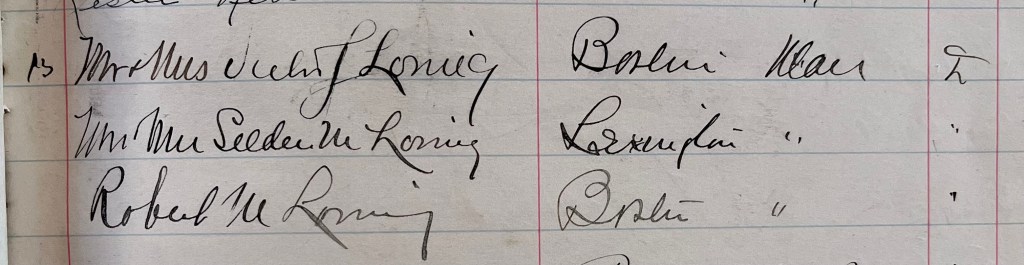 Mr & Mrs Victor J Loring Boston Mass
Mr Mrs Selden M Loring Lexington "  "
Robert M Loring Boston "  "